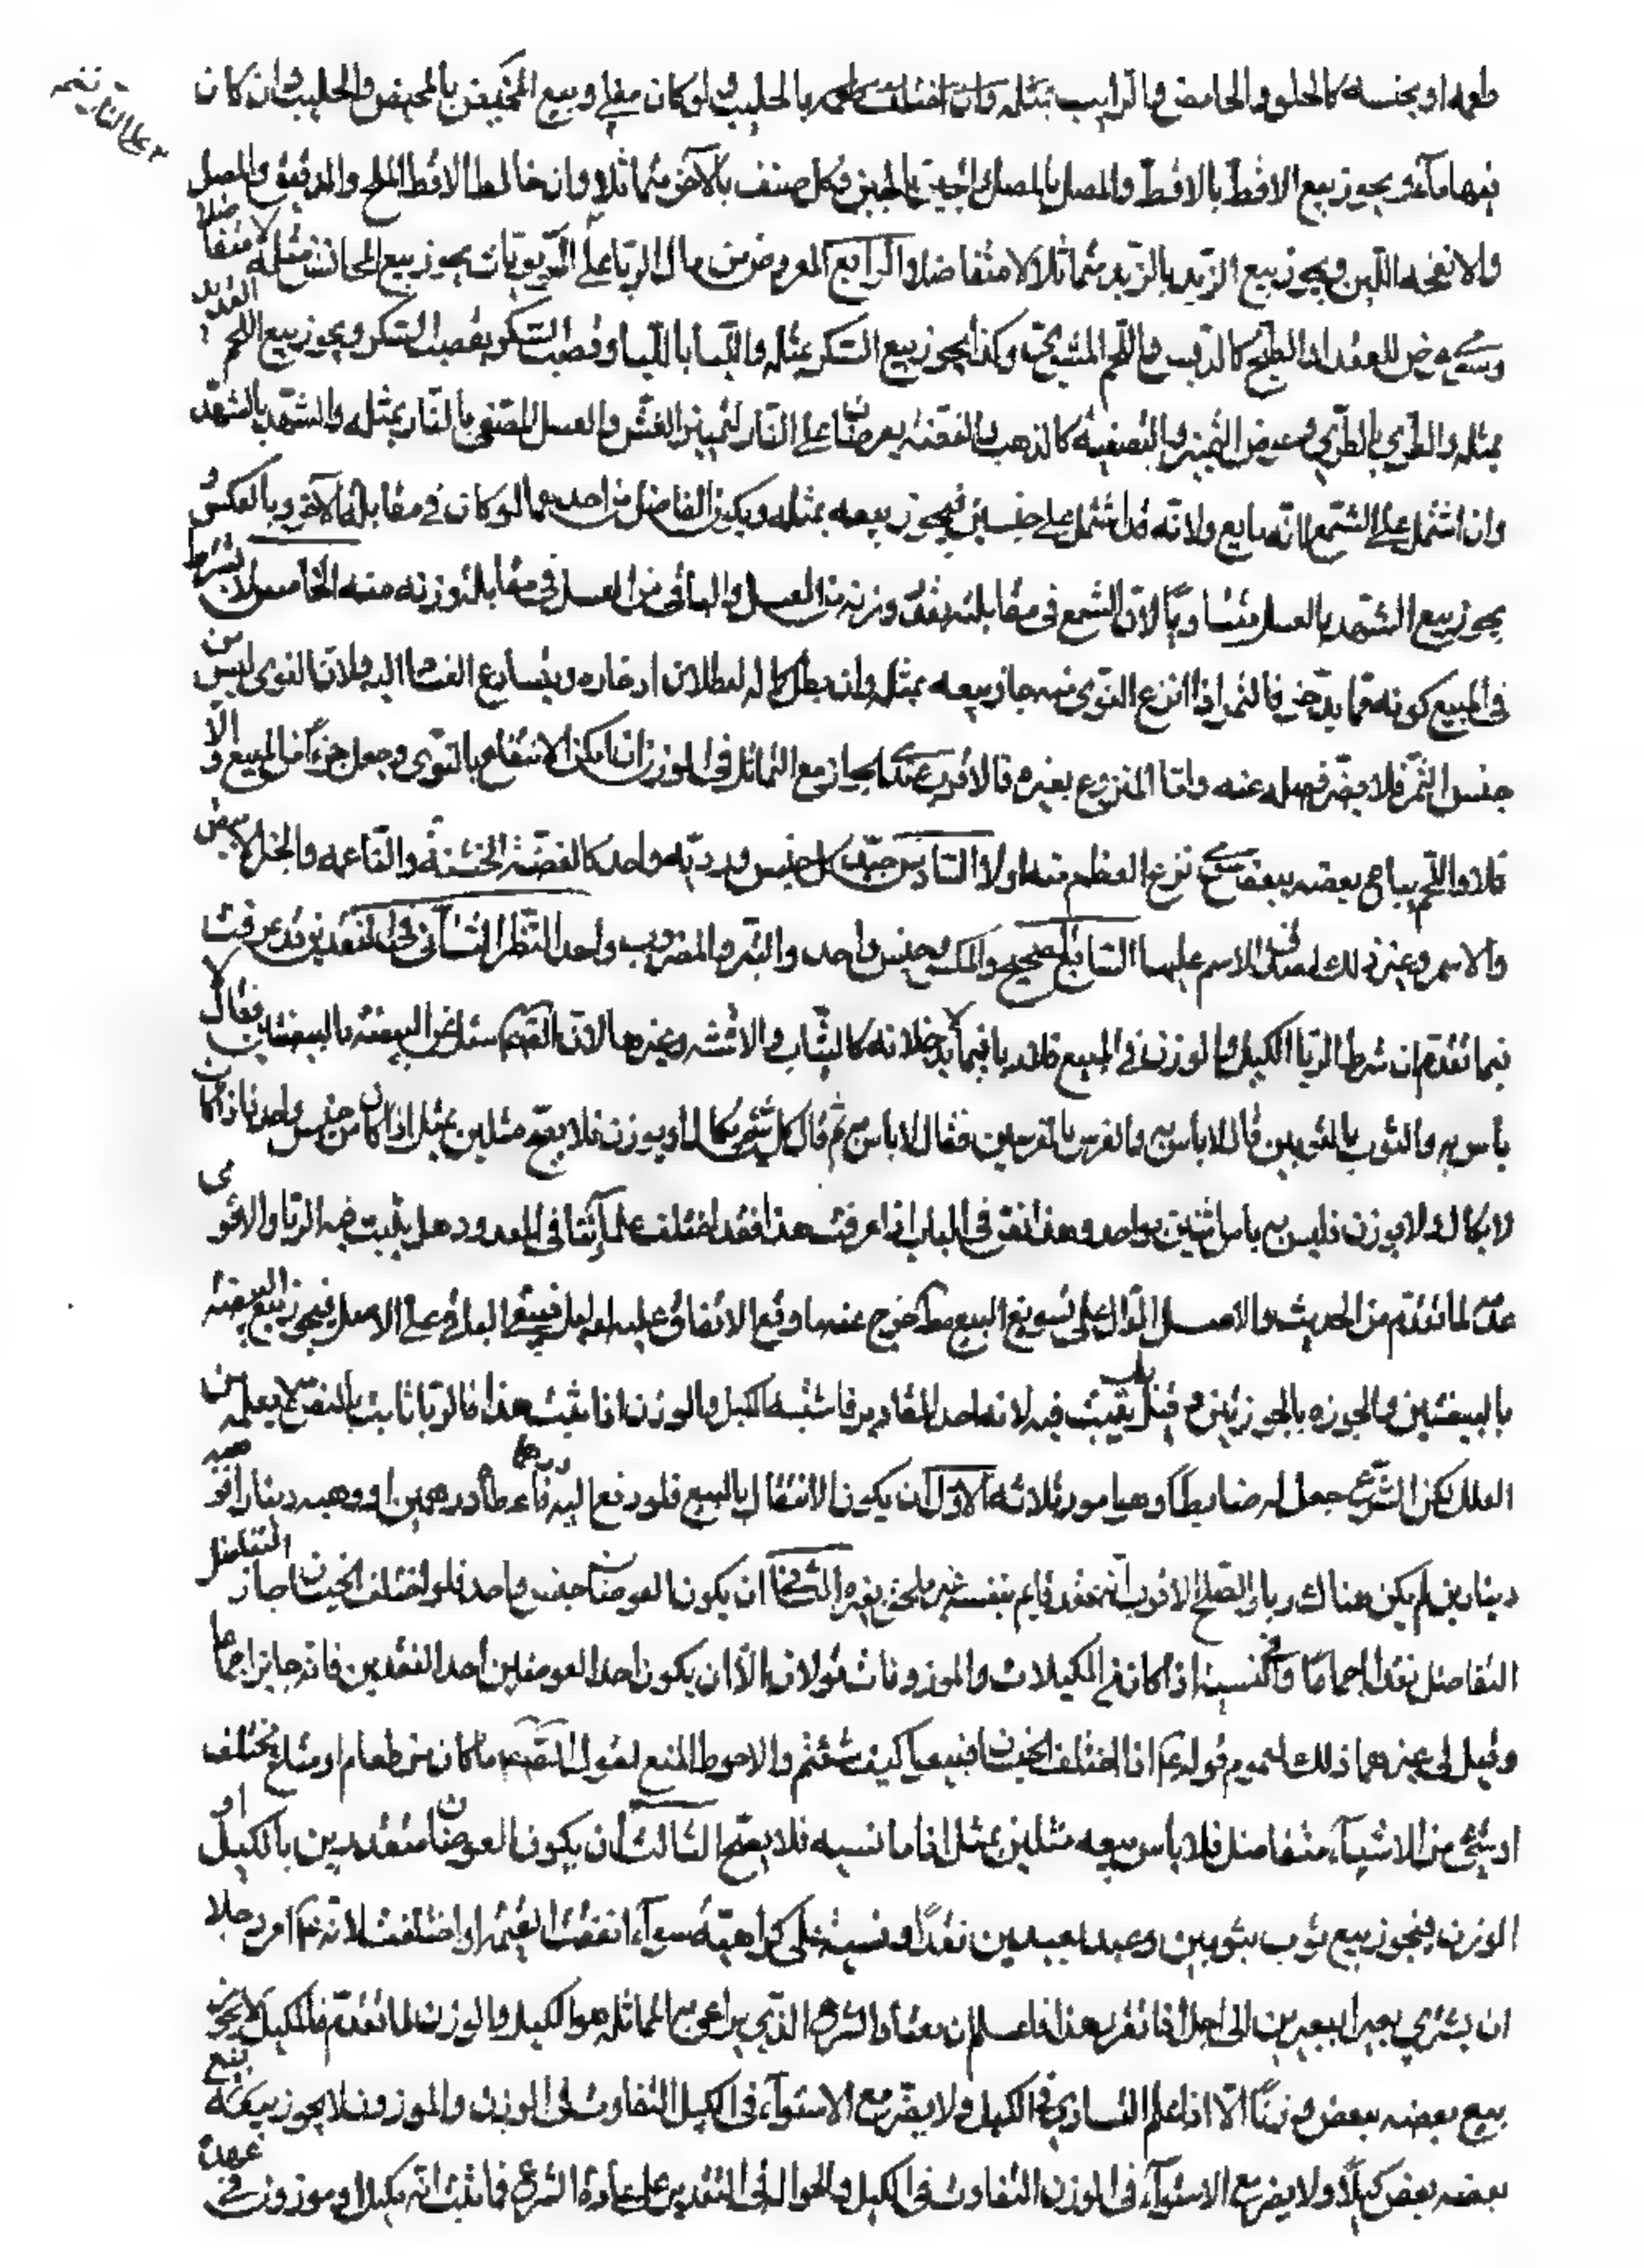 طعمه او بجنسه كالحلو والحامض والرايب بمثله وان اختلف طعمه بالحليب ولو كان مغلي وبيع المخيض بالمخيض والحليب وان كان
فيها ماء ويجوز بيع الاقط بالاقط والمصل بالمصل والجبن بالجبن وكل صنف بالآخر متماثلا وان خالط الاقط الملح والدقيق والمصل
والانفحه اللبن ويجوز بيع الزبد بالزبد متماثلا لا متفاضلا الرابع المعروض من مال الربا على النار يجوز بيع المجانس مثله لا متفاضلا
عرض للعقد او الطبخ كالدبس واللحم المشوي وكذا يجوز بيع السكر بمثله واللبا باللبا وقصب السكر بقصب السكر ويجوز بيع اللحم
بمثله والطري بالطري وعرض التميز والتصفية كالذهب والفضه يعرضان على النار لتميز الغش والعسل المصفى بالنار بمثله والشهد بالشهد
وان اشتمل على الشمع لانه بايع ولانه قد اشتمل على جنسين فيجوز بيعه بمثله ويكون الفاضل من احدهما لو كان في مقابلة الآخر وبالعكس و
يجوز بيع الشهد بالعسل متساويا لان الشمع في مقابلته بقدر وزنه من العسل والباقي من العسل في مقابلته وزنه منه الخامس لا يشترط
في المبيع كونه مما يدخر فالتمر اذا انزع النوى منه جاز بيعه بمثله وان بطل كماله لبطلان ادخاره ويسارع الفساد اليه ولان النوى ليس من
جنس التمر فلا يضر فصله عنه واما المنزوع بغيره فالاقرب عندي الجواز مع التماثل في الوزن ان امكن الانتفاع بالنوى وجعل جزءا من المبيع والا
فلا واللحم يباع بعضه ببعض نزع العظم منه او لا السادس جيد كل جنس ورديه واحد كالفضة الخشنة والناعمه والخل الابيض
والاسمر وغير ذلك لصدق الاسم عليها السابع الصحيح والمكسور جنس واحد والتبر والمضروب واحد النظر الثاني في النقدين قد عرفت
فيما تقدم ان شرط الربا الكيل والوزن في المبيع فلا ربا فيما لا يدخلانه كالثياب والاقمشه وغيرها لان الصادق سئل عن البيضه بالبيضتين فقال لا
باس به والثوب بالثوبين قال لا باس به والفرس بالفرسين فقال لا باس به ثم قال كل شئ يكال او يوزن فلا يصح مثلين بمثل اذا كان من جنس واحد فاذا كان
لا يكال ولا يوزن فليس به باس اثنين بواحد وهذا نص في الباب اذا عرفت هذا فقد اختلف علماؤنا في المعدود هل يثبت فيه الربا والاقوى
عدمه لما تقدم من الحديث والاصل الدال على تسويغ البيع مطلقا خرج عنه ما وقع الاتفاق عليه فيبقى الباقي على الاصل فيجوز بيع البيضه
بالبيضتين والجوزه بالجوزتين وقيل يثبت فيه لانه احد المقادير فاشبه الكيل والوزن اذا ثبت هذا فالربا ثابت بالنص لا بعله من
العلل لكن الشرع جعل له ضابطا وهي امور ثلاثه الاول ان يكون الانتقال بالبيع فلو دفع اليه درهما فاعطاه درهمين او وهبه دينارا فوهبه
دينارين لم يكن هناك ربا والصلح الاقرب انه عقد قايم بنفسه غير ملحق بغيره الثاني ان يكون العوضان جنس واحد فلو اختلف الجنسان جاز التفاضل
التفاضل نقدا اجماعا وفي النسيه اذا كانا في المكيلات والموزونات قولان الا ان يكون احد العوضين احد النقدين فانه جايز اجماعا
وقيل في غيرهما ذلك لعموم قوله اذا اختلف الجنسان فبيعوا كيف شئتم والاحوط المنع لقول الصادق ما كان من طعام او متاع مختلف
او شئ من الاشياء متفاضل فلا باس ببيعه مثلين بمثل فاما نسيه فلا يصح الثالث ان يكون العوضان مقدرين بالكيل او
الوزن فيجوز بيع ثوب بثوبين وعبد بعبدين نقدا ونسيئة على كراهيه سواء اتفقت القيمه او اختلفت لانه امر رجلا
ان يشتري بعيرا ببعيرين الى اجل اذا تقرر هذا فاعلم ان معتاد الشرع الذي يراعى به المماثله هو الكيل والوزن لما تقدم فالمكيل لا يجوز
بيع بعضه ببعض وزنا الا اذا علم التساوي في الكيل ولا يضر مع الاستواء في الكيل التفاوت في الوزن والموزون لا يجوز بيع
بعضه ببعض كيلا ولا يضر مع الاستواء في الوزن التفاوت في الكيل والحوالة في التقدير على عادة الشرع فما ثبت انه مكيل او موزون في عهده